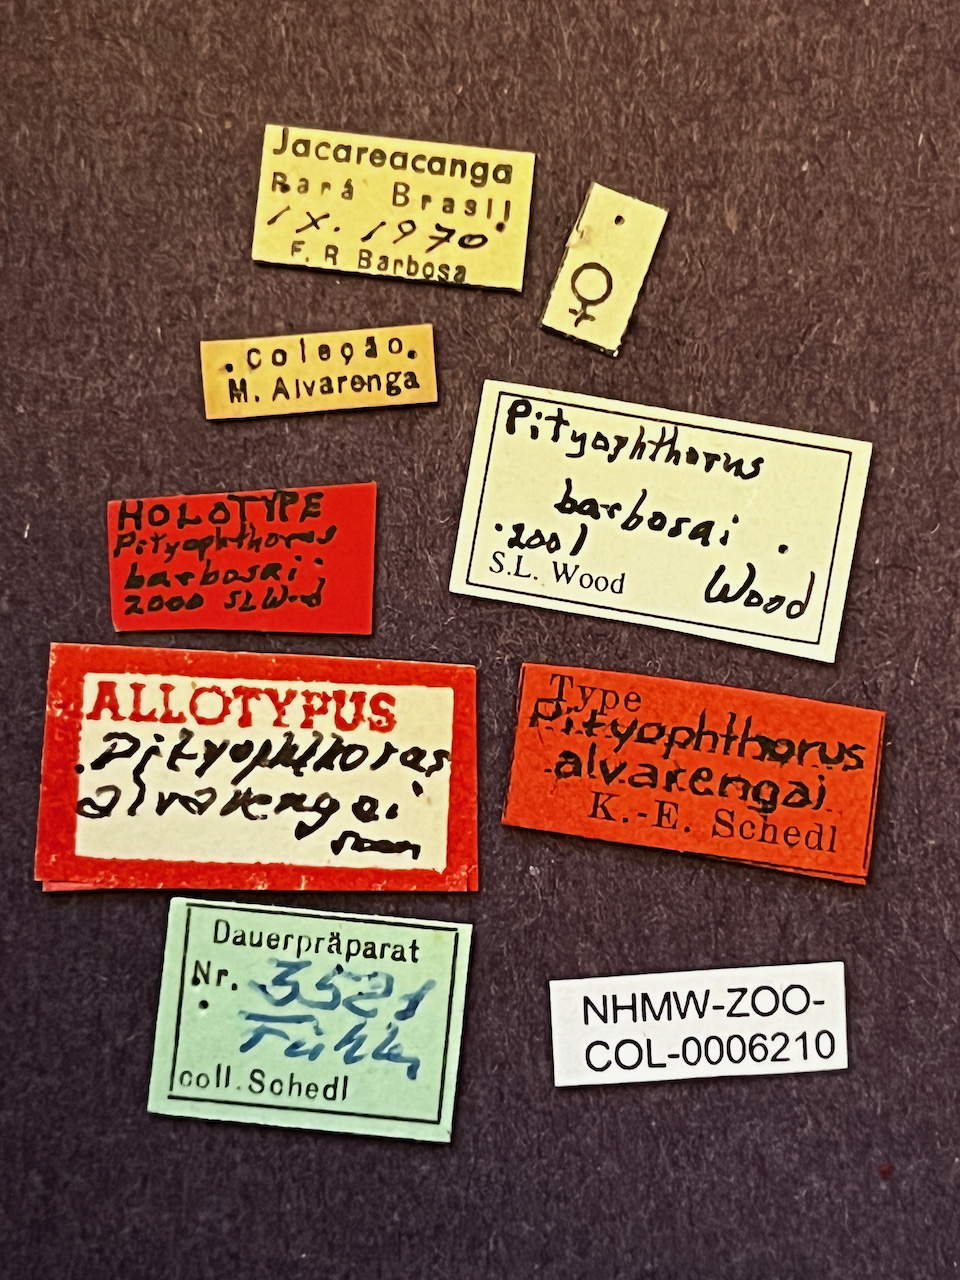 Jacareacanga
Pará Brasil
IX. 1970
F. R Barbosa
♀
Coleção
M. Alvarenga
Pityophthorus
barbosai
2001
S.L. Wood
Wood
HOLOTYPE
Pityophthorus
barbosai
2000 SL Wood
ALLOTYPUS
Pityophthorus
alvarengai
Type
Pityophthorus
alvarengai
K.-E. Schedl
Dauerpräparat
Nr. 3521
Fühler
coll. Schedl
NHMW-ZOO-
COL-0006210